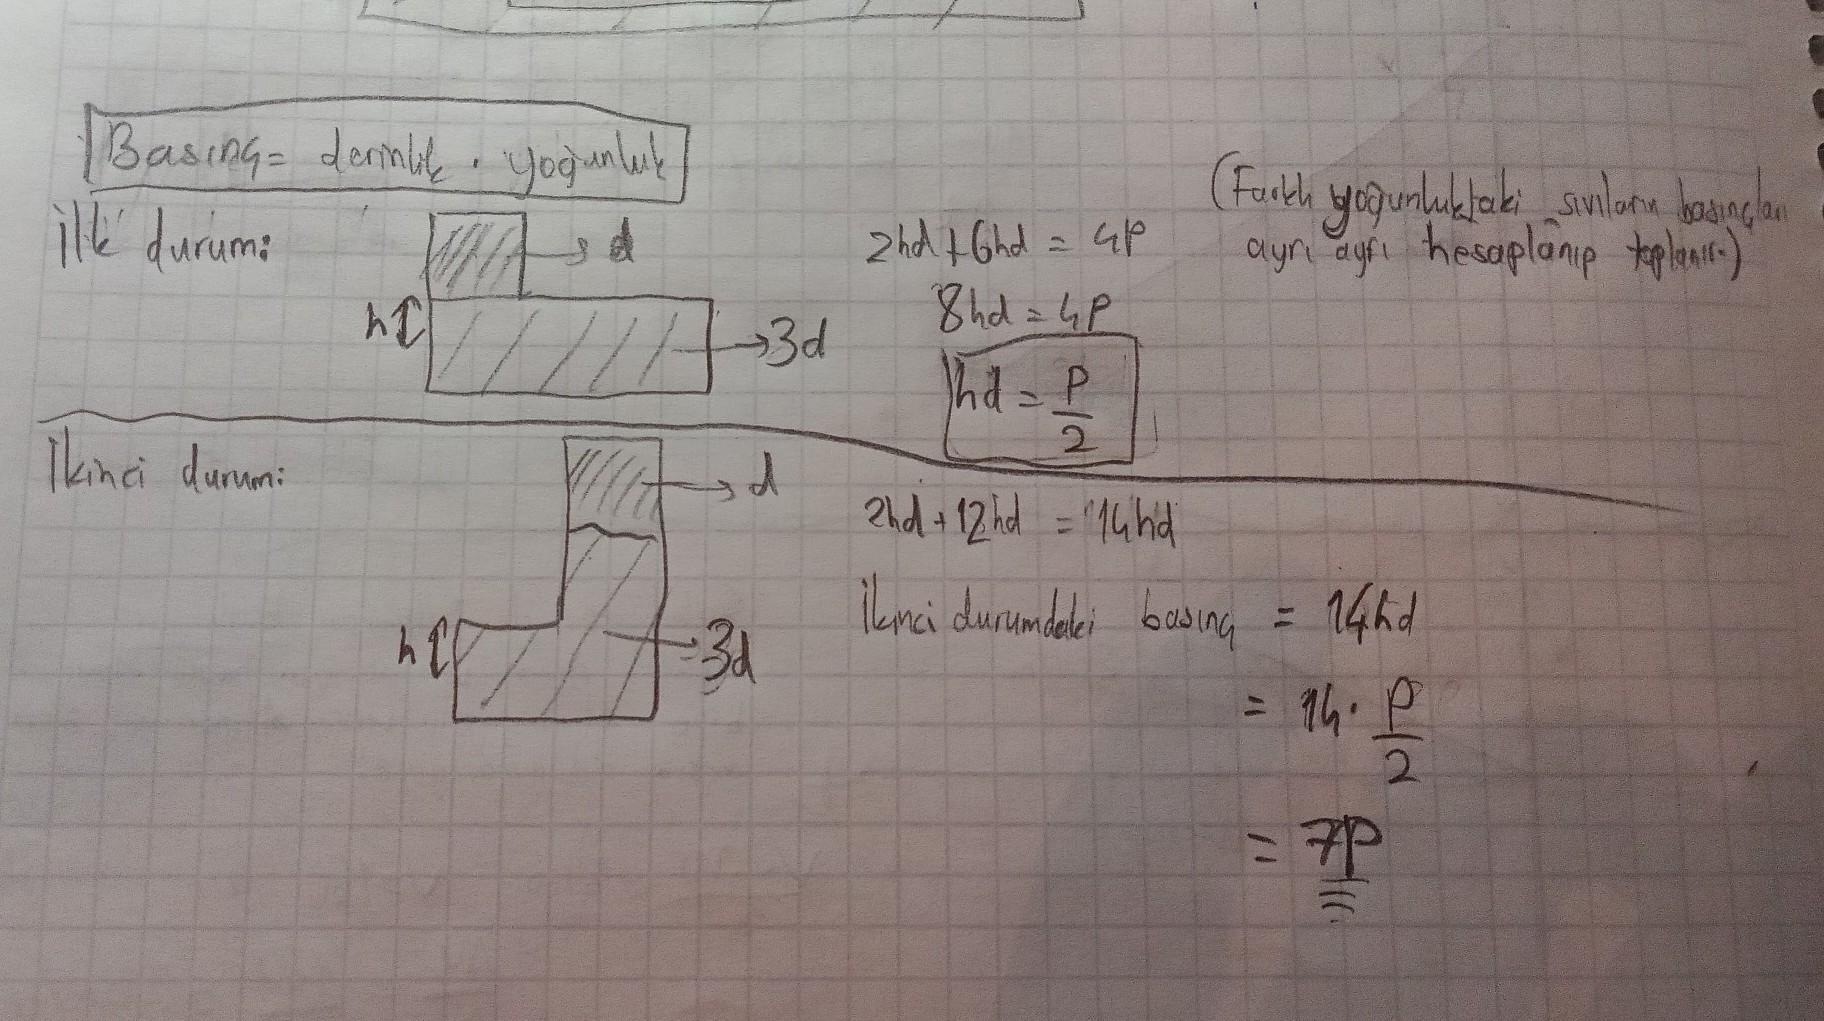 Basınç = derinlik . yoğunluk
(Farklı yoğunluktaki sıvıların basınçları
ayrı ayrı hesaplanıp toplanır.)
İlk durum:
d
h
3d
2hd + 6hd = 4P
8hd = 4P
hd = P/2
İkinci durum:
d
h
3d
2hd + 12hd = 14hd
İkinci durumdaki basınç = 14hd
= 14 . P/2
= 7P